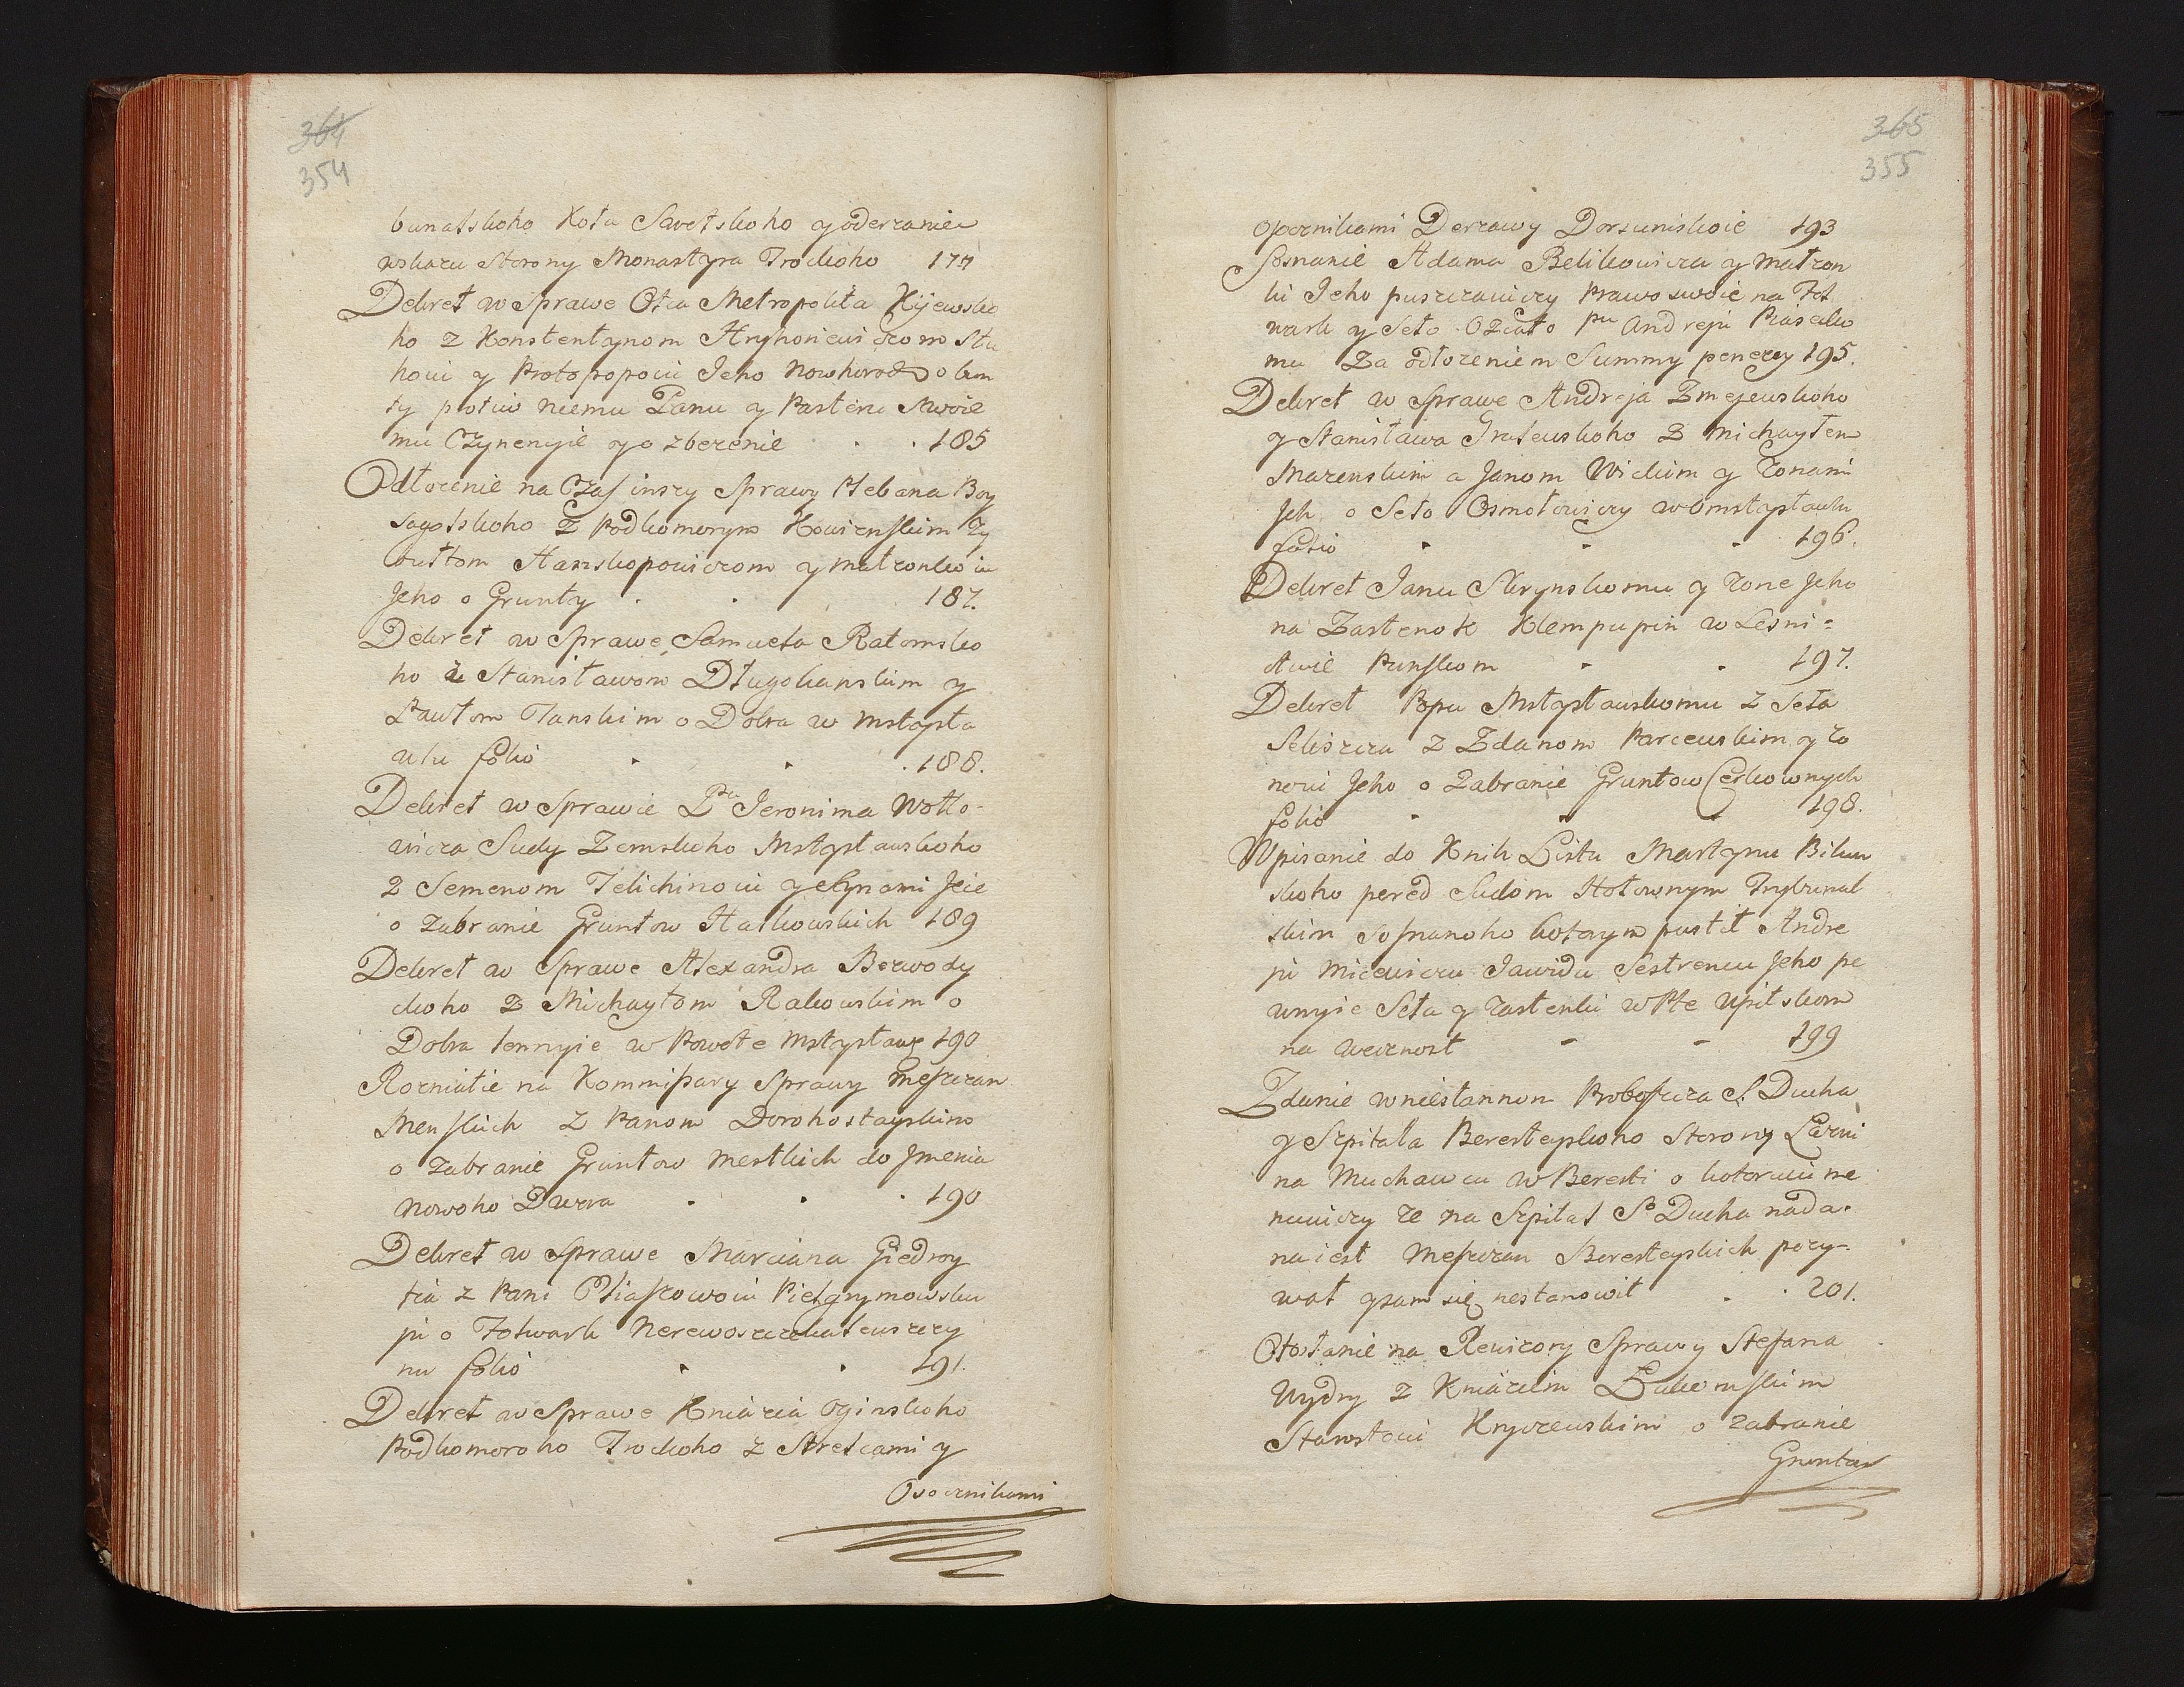 364
354
bunatskoho Koła Swetskoho y oderzanie
wskazu Storony Monastyra Trockoho 177
Dekret w Sprawe Otca Metropolita Kijewsko
ho z Konstentynom Hryhoriewiczom Słu
hoiu y Protopopoiu Jeho Nowhorods o bun
ty protiw niemu Panu y Pasteru Swoie
mu Czynenyie y o zberenie . . 185
Odłożenie na Czas inszy Sprawy Plebana Boy
sagolskoho z Podkomorym Kowienskim Zy
button Stanskopowiczom y małżonkoiu
Jeho o Grunty . . 187.
Dekret w Sprawe Samueła Ratomsko
ho z Stanisławom Długokanskim y
Pawłom Tanskim o Dobra w Mstysła
wlu folio . . . 188.
Dekret w Sprawie Pa Jeronima Wołło-
wicza Sudy Zemskoho Mstysławskoho
z Semenom Telichinoiu y Synami Jeie
o zabranie Gruntow Hatkowskich 189
Dekret w Sprawe Alexandra Bezwody
ckoho z Michayłom Rakowskim o
Dobra lennyie w Powete Mstysławs 190
Rozniatie na Kommissary Sprawy Meszczan
Menskich z Panom Dorohostayskim
o zabranie Gruntow Mestkich do Jmenia
Nowoho Dwora . . . 190
Dekret w Sprawe Marciana Giedroy
tia z Pani Ptiaszowoiu Pielgrymowsku
ju o Folwark Nerewoszczchatewszczy
nu folio . . 191.
Dekret w Sprawe Kniazia Oginskoho
Podkomoroho Trockoho z Strelcami y
Osocznikami
365
355
Osocznikami Derzawy Dorsuniskoie 193
Soznanie Adama Belikowicza y Małzon
ki Jeho puszczaiuczy Prawo swoie na Fol
wark y Seło Oziato pu Andreju Piaseczko
mu za odłożeniem Summy penezey 195.
Dekret w Sprawe Andreja Zmejewskoho
y Stanisława Gratewskoho z Michayłem
Mazenskim a Janom Wickim y Zonami
Jch o Seło Osmołowiczy w Omstysławlu
folio . . . 196.
Dekret Janu Skrynskomu y Zone Jeho
na Zastenok Klempupin w Lesni=
ctwie Punskom . . 197.
Dekret Popu Mstysławskomu z Seła
Seliszcza z Zdanom Parcewskim y Zo
noiu Jeho o Zabranie Gruntow Cerkownych
folio . . . 198.
Wpisanie do Knih Listu Martynu Bilun
skoho pered Sudom Hołownym Trybunal
skim Soznanoho kotorym pustil Andre
ju Micewiczu Jawidu Sestrencu Jeho pe
wnyie Seła y Zastenki w Pte Upitskom
na wecznost - - 199
Zdanie w niestannom Proboszcza S. Ducha
y Szpitala Beresteyskoho Storony Łazni
na Muchawcu w Beresti o kotoruiu me
nuiuczy ze na Szpital So Ducha nada=
na iest Meszczan Beresteyskich pozy=
wał y sam się nestanowił . . 201.
Otosłanie na Rewizory Sprawy Stefana
Wydry z Kniazem Łukomskim
Starostoiu Kryczewskim o zabranie
Gruntow